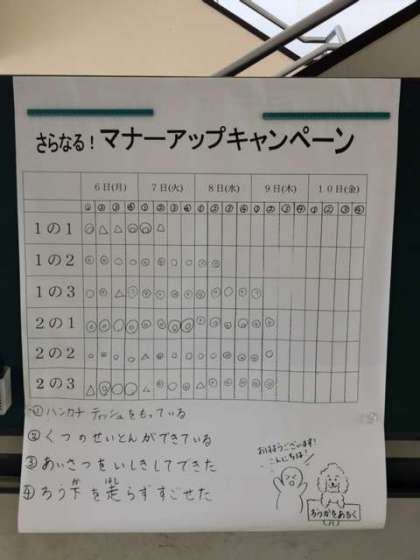 さらなる！マナーアップキャンペーン
6日(月) 7日(火) 8日(水) 9日(木) 10日(金)
① ② ③ ④ ① ② ③ ④ ① ② ③ ④ ① ② ③ ④ ① ② ③ ④
1の1
1の2
1の3
2の1
2の2
2の3
①ハンカチ ティッシュをもっている
②くつのせいとんができている
③あいさつをいしきしてできた
④ろう下を走らずすごせた
か はし
おはようございます！
こんにちは！
ろうかをあるく